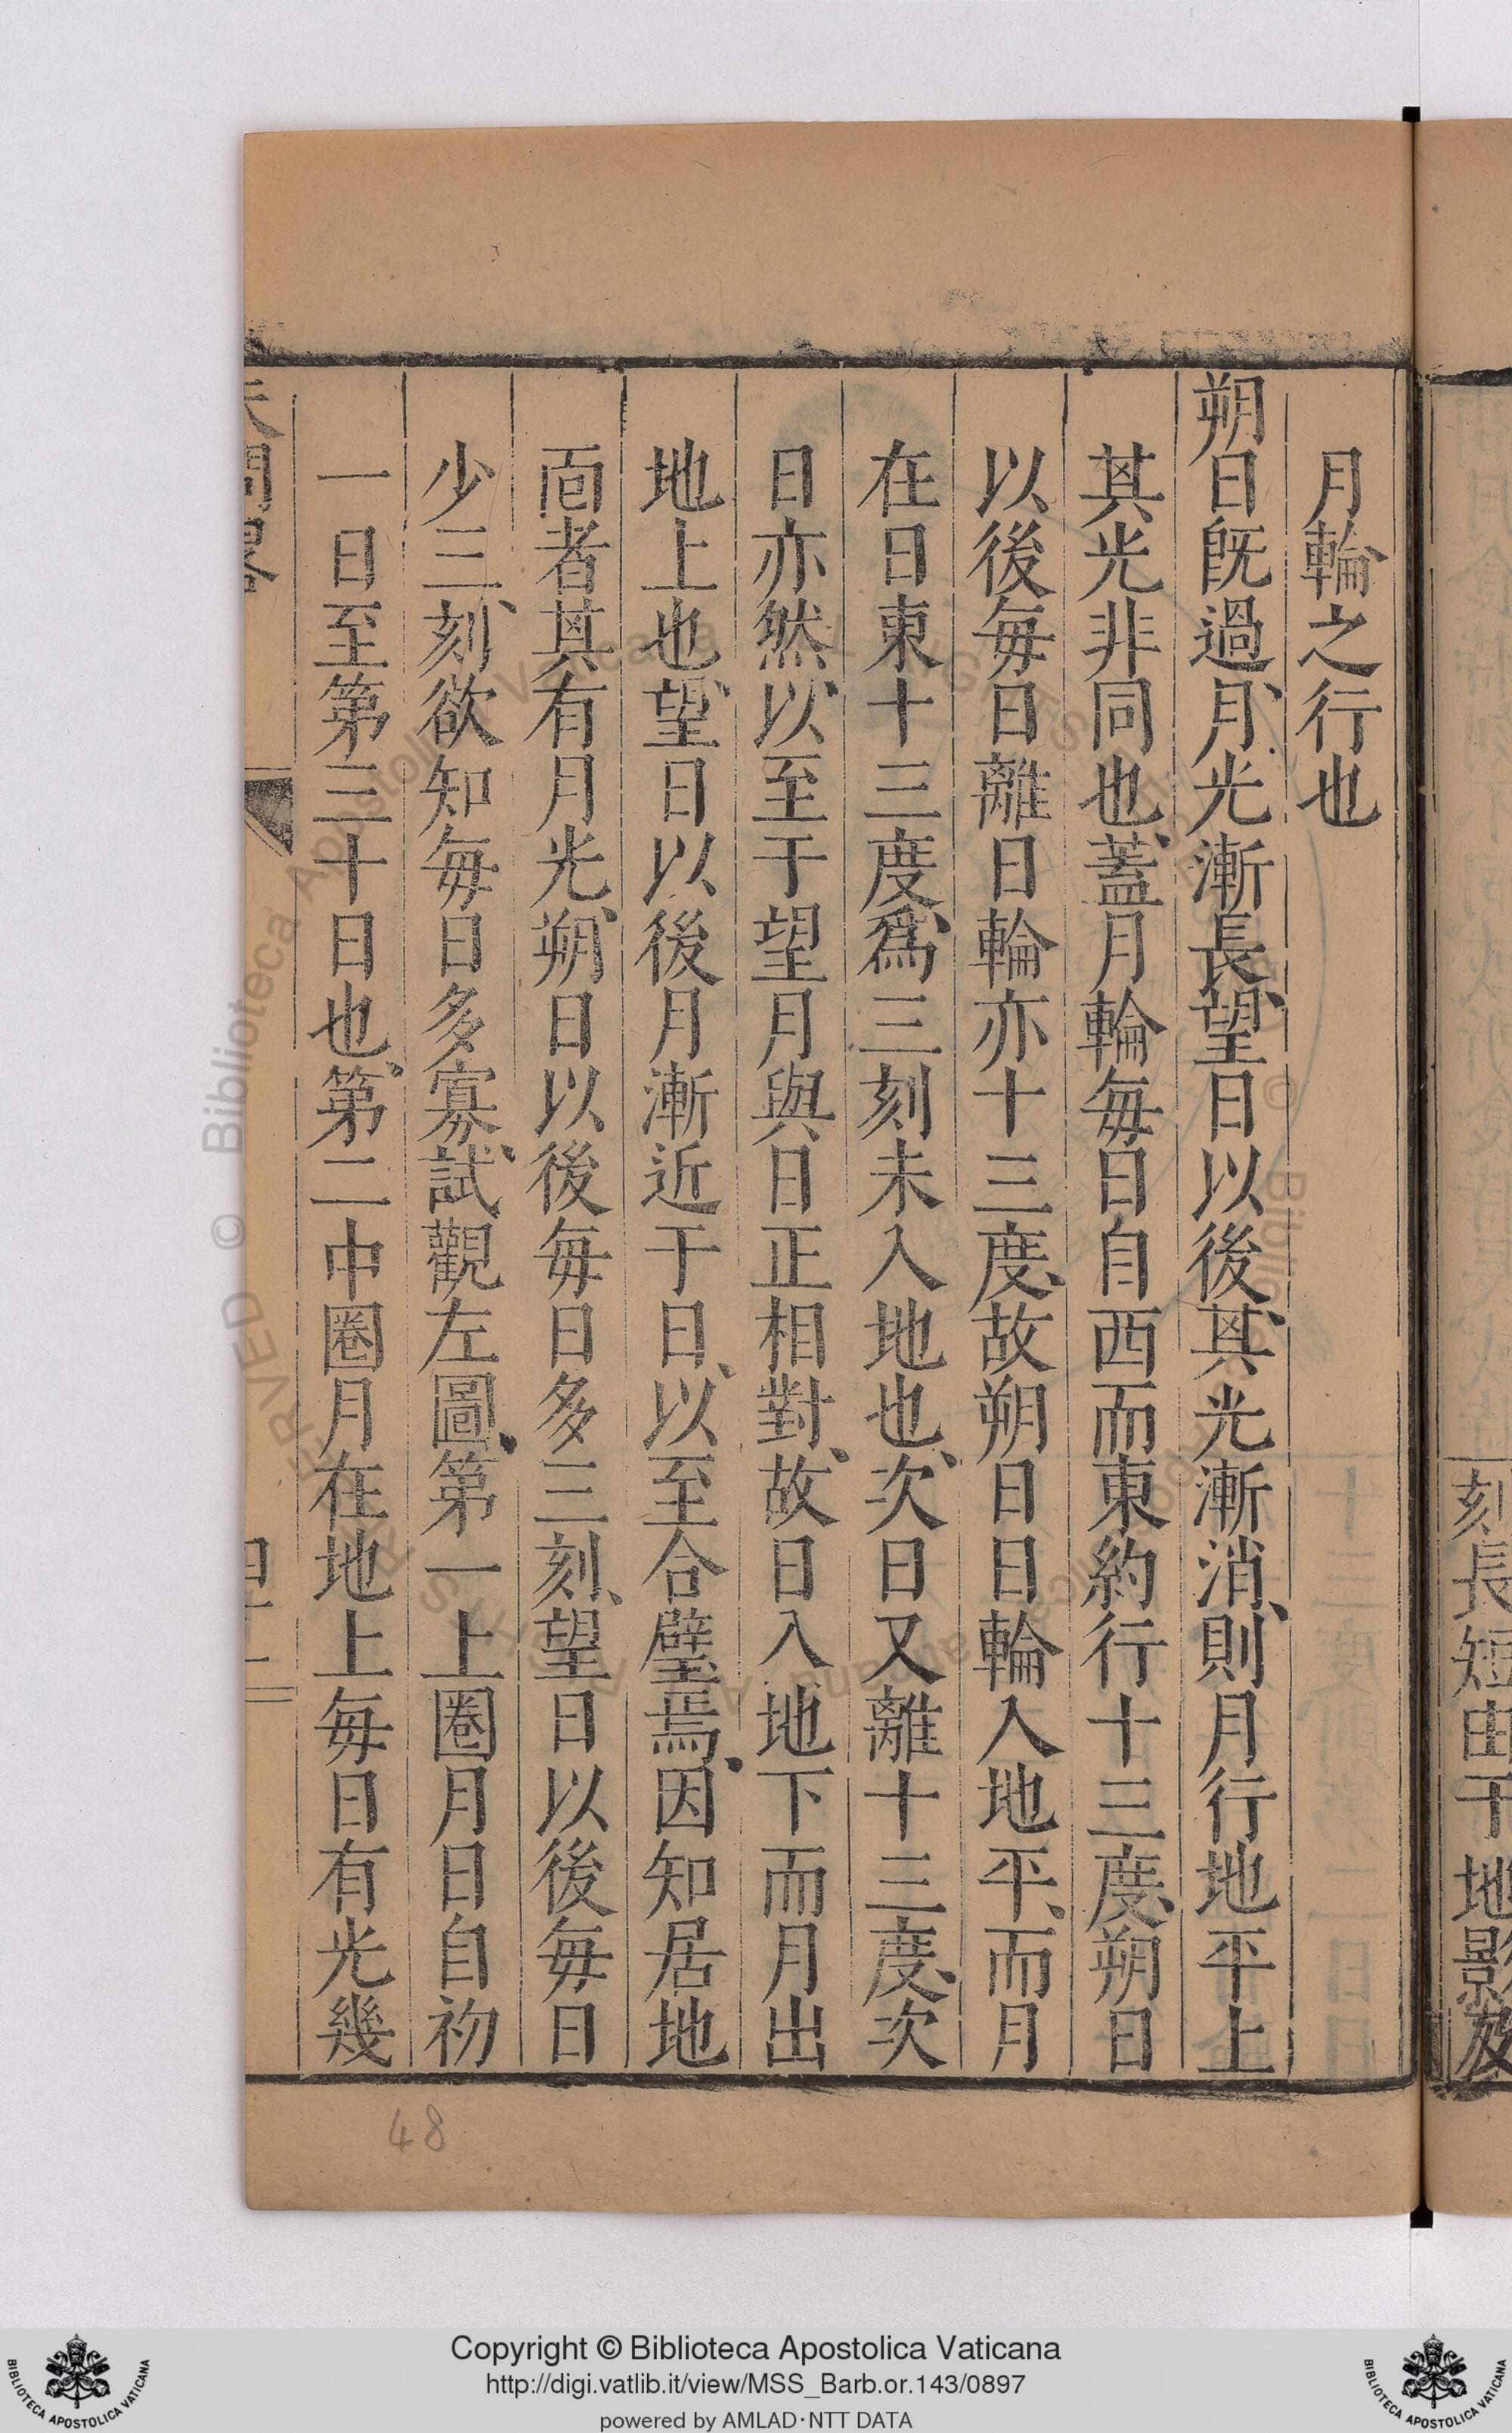 月輪之行也
朔日旣過、月光漸長、望日以後、其光漸消、則月行地平上
其光非同也、蓋月輪每日自西而東約行十三度、朔日
以後每日離日輪亦十三度、故朔日日輪入地平、而月
在日東十三度、爲三刻未入地也、次日又離十三度、次
日亦然、以至于望月與日正相對、故日入地下而月出
地上也、望日以後月漸近于日、以至合璧焉、因知居地
面者其有月光、朔日以後每日多三刻、望日以後每日
少三刻、欲知每日多寡、試觀左圖、第一上圈月日自初
一日至第三十日也、第二中圈月在地上每日有光幾
天問畧
刻長短由于地影及
48
Copyright © Biblioteca Apostolica Vaticana
http://digi.vatlib.it/view/MSS_Barb.or.143/0897
powered by AMLAD·NTT DATA
BIBLIOTECA APOSTOLICA VATICANA
BIBLIOTECA APOSTOLICA VATICANA